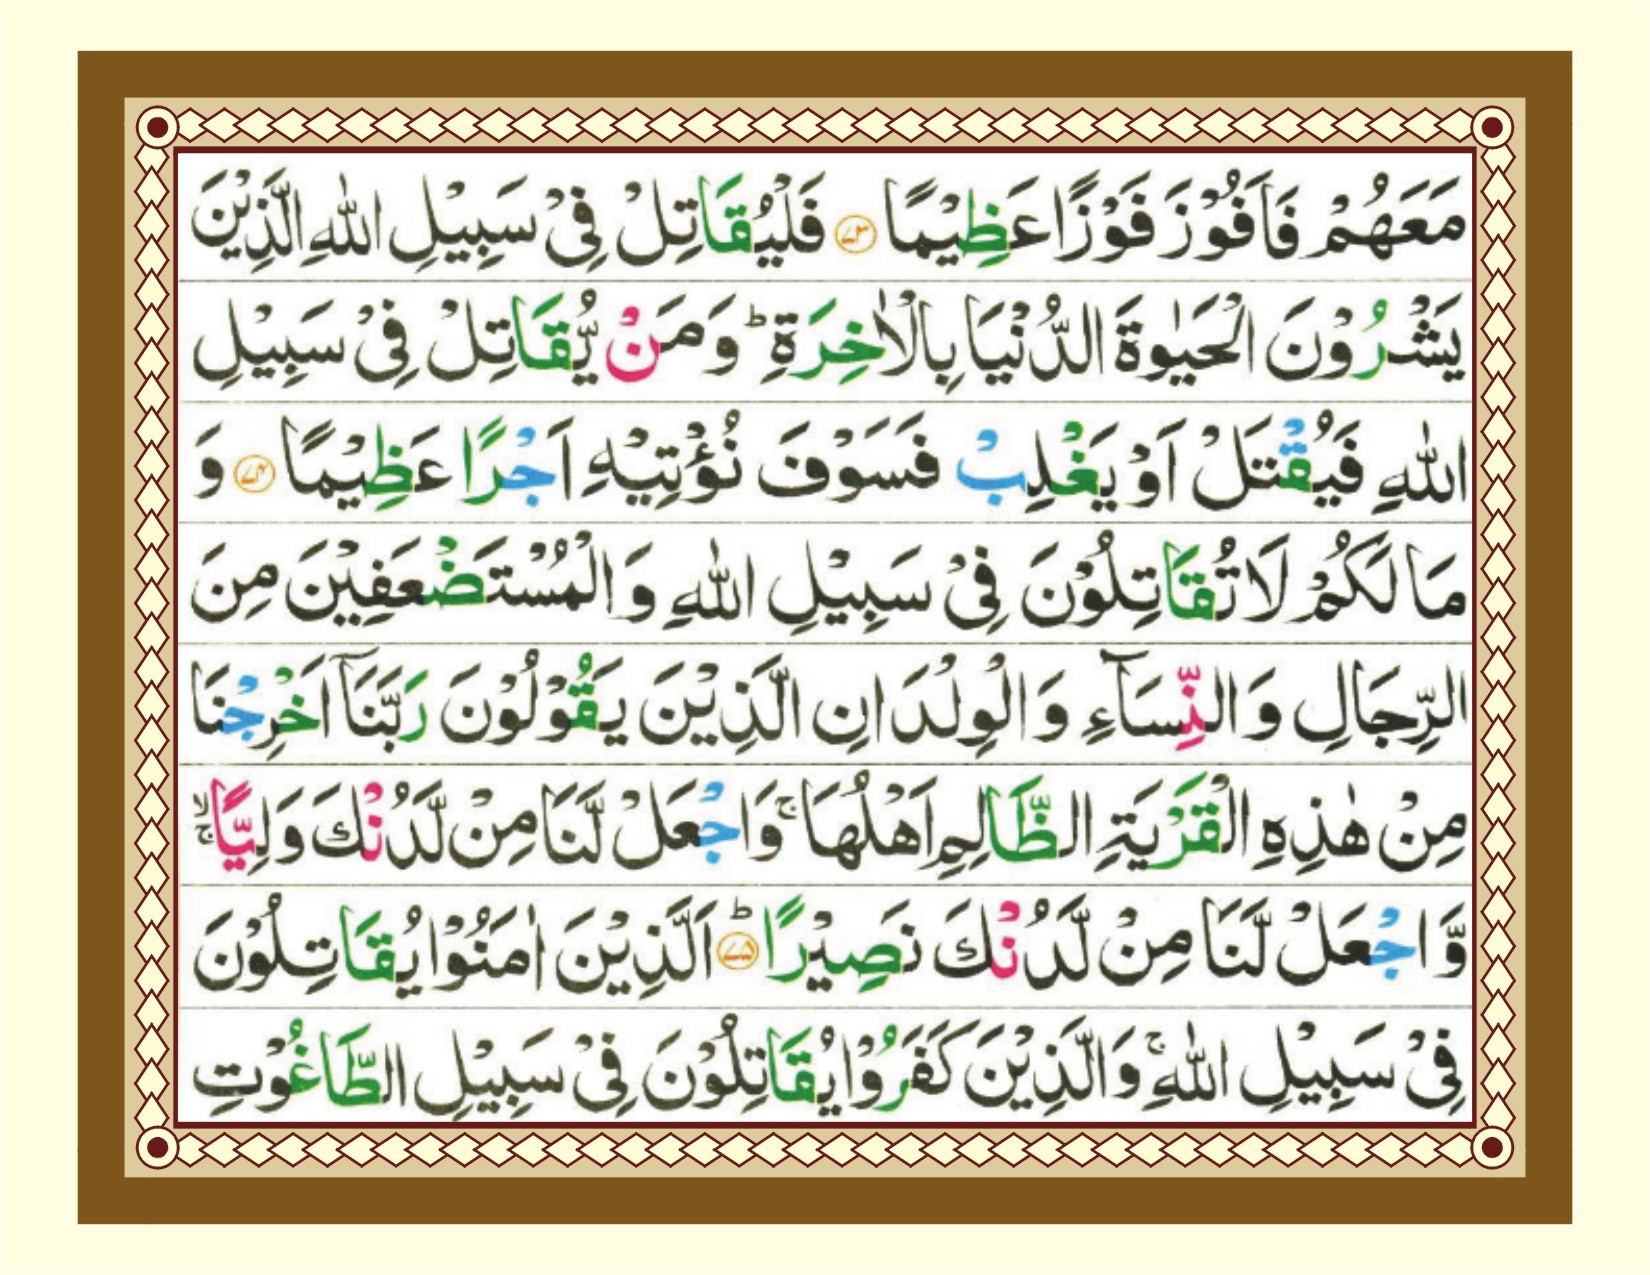 مَعَهُمْ فَاَفُوْزَ فَوْزًا عَظِيْمًا ﴿۷۳﴾ فَلْيُقَاتِلْ فِىْ سَبِيْلِ اللّٰهِ الَّذِيْنَ
يَشْرُوْنَ الْحَيٰوةَ الدُّنْيَا بِالْاٰخِرَةِ ؕ وَمَنْ يُّقَاتِلْ فِىْ سَبِيْلِ
اللّٰهِ فَيُقْتَلْ اَوْ يَغْلِبْ فَسَوْفَ نُؤْتِيْهِ اَجْرًا عَظِيْمًا ﴿۷۴﴾ وَ
مَا لَكُمْ لَا تُقَاتِلُوْنَ فِىْ سَبِيْلِ اللّٰهِ وَالْمُسْتَضْعَفِيْنَ مِنَ
الرِّجَالِ وَالنِّسَآءِ وَالْوِلْدَانِ الَّذِيْنَ يَقُوْلُوْنَ رَبَّنَآ اَخْرِجْنَا
مِنْ هٰذِهِ الْقَرْيَةِ الظَّالِمِ اَهْلُهَا ۚ وَاجْعَلْ لَّنَا مِنْ لَّدُنْكَ وَلِيًّا ۙۚ
وَّاجْعَلْ لَّنَا مِنْ لَّدُنْكَ نَصِيْرًا ؕ﴿۷۵﴾ اَلَّذِيْنَ اٰمَنُوْا يُقَاتِلُوْنَ
فِىْ سَبِيْلِ اللّٰهِ ۚ وَالَّذِيْنَ كَفَرُوْا يُقَاتِلُوْنَ فِىْ سَبِيْلِ الطَّاغُوْتِ